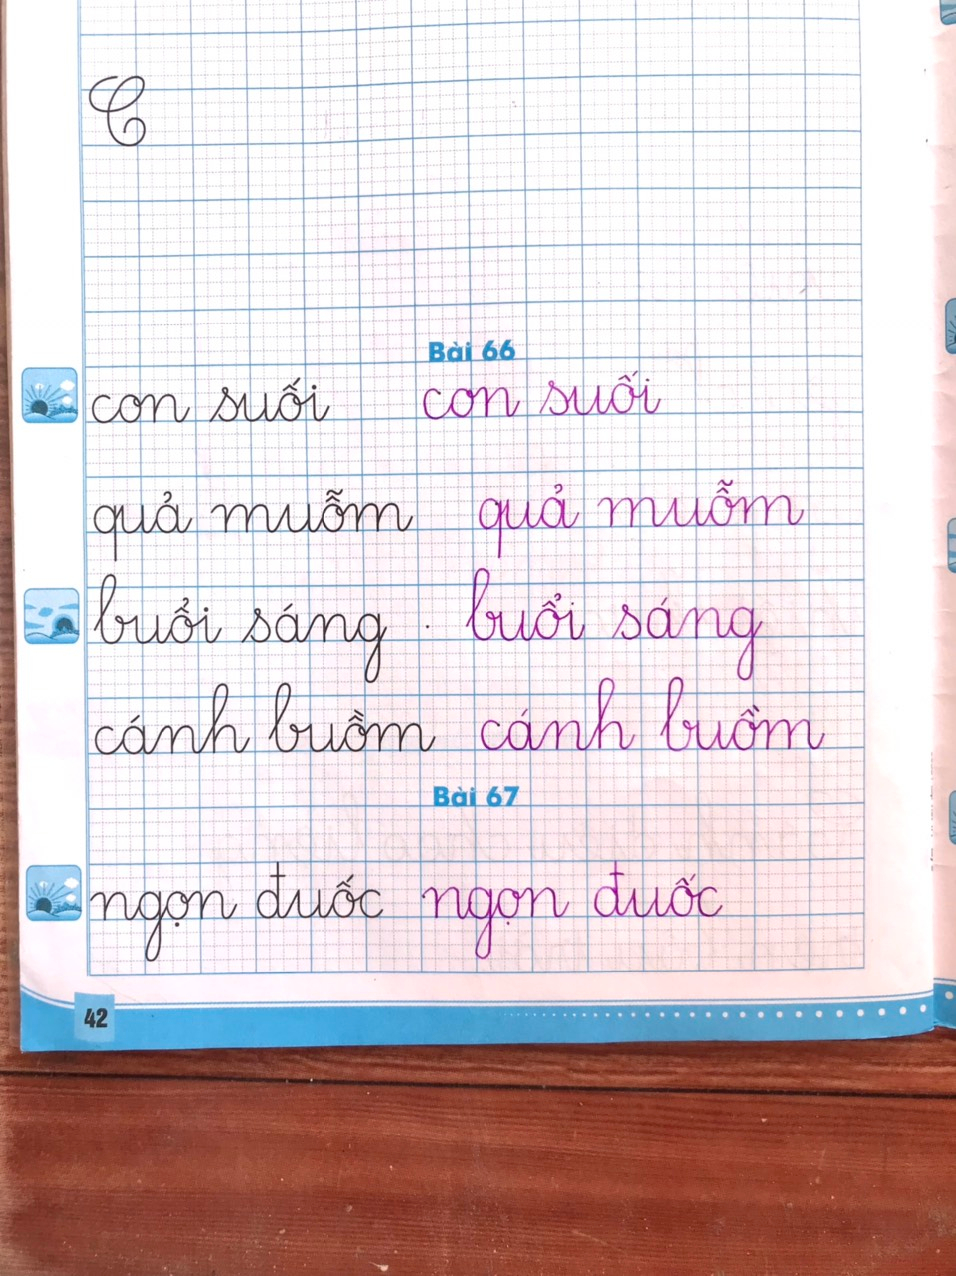 C
Bài 66
con suối con suối
quả muỗm quả muỗm
buổi sáng buổi sáng
cánh buồm cánh buồm
Bài 67
ngọn đuốc ngọn đuốc
42